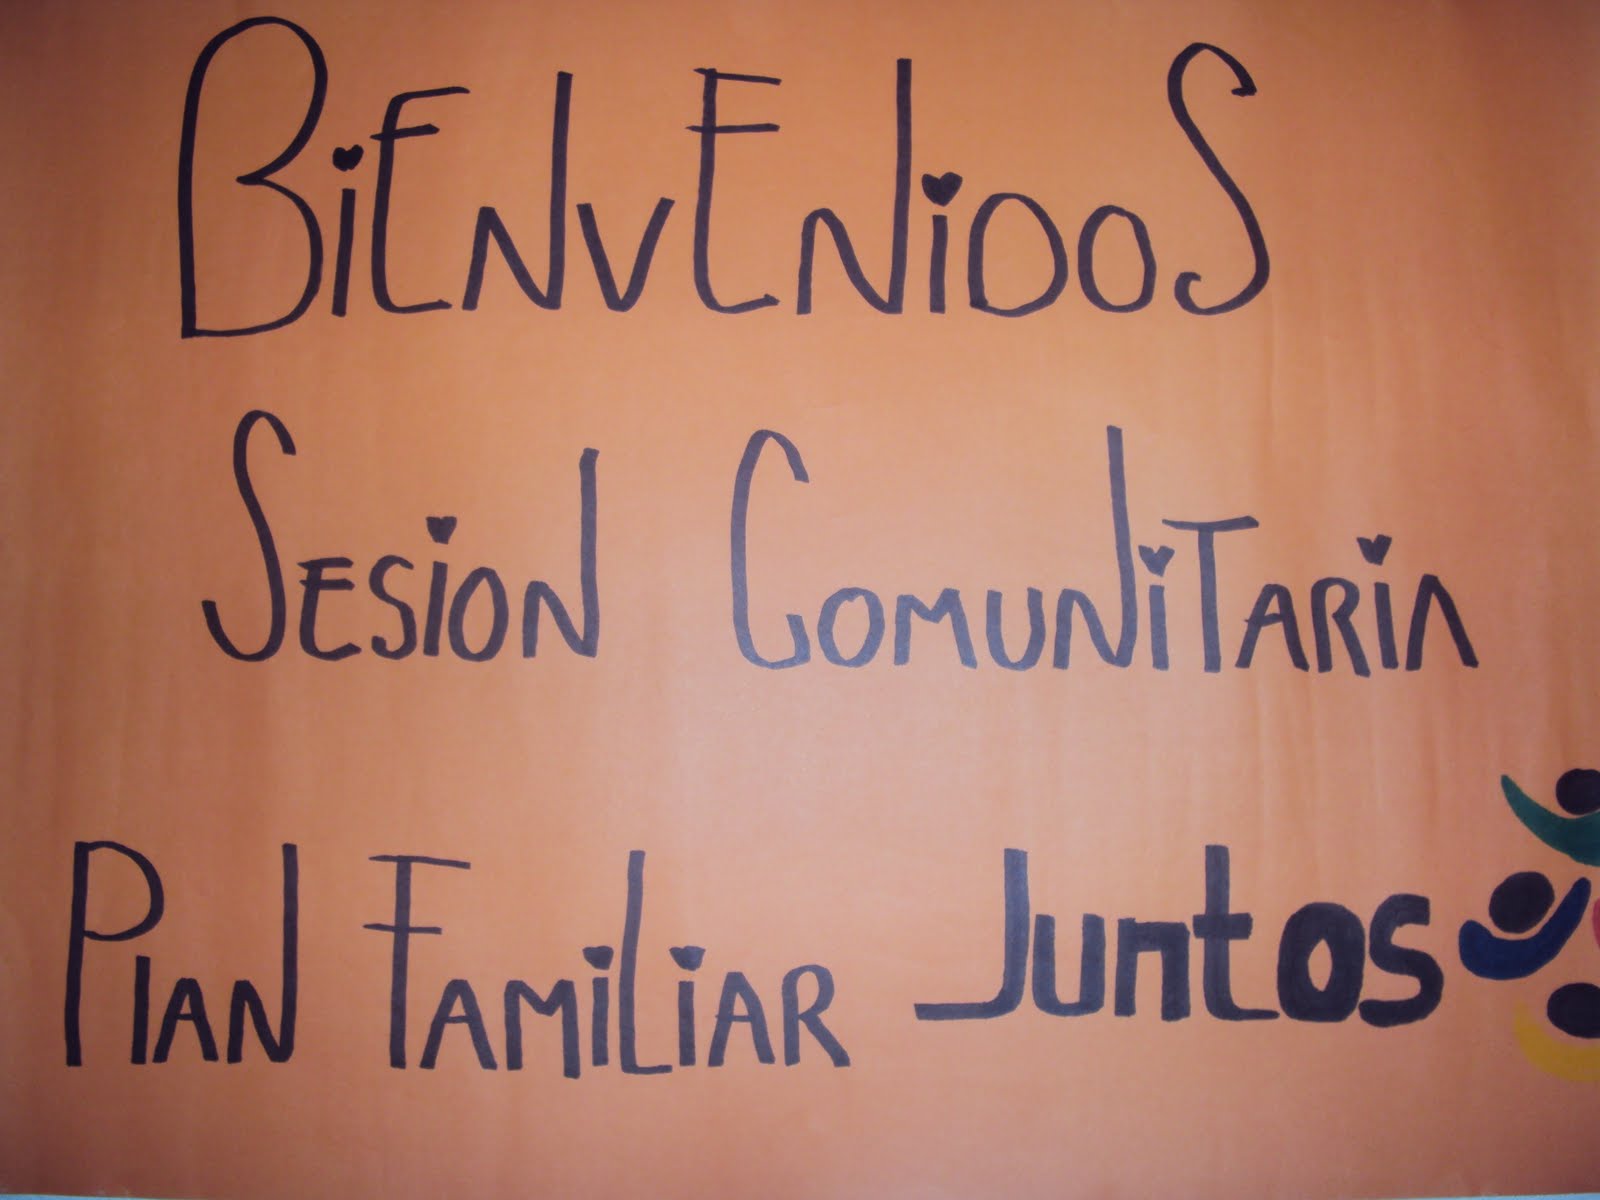 BiENVENiDOS
SESiON COMUNiTARiA
PlAN FAMiLiAR Juntos